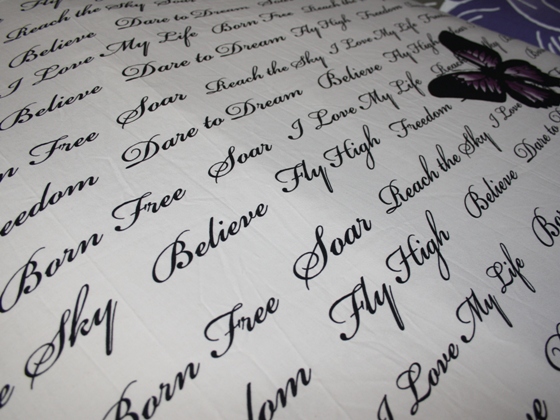 Reach the Sky Soar Dare to Dream Soar
Believe Dare to Dream Born Free Reach the Sky Soar
I Love My Life Born Free Fly High Freedom
Believe Dare to Dream Fly High I Love My Life
Soar Reach the Sky Believe Fly High
Free Dare to Dream I Love My Life Reach
Freedom Soar Fly High Freedom
Born Free Believe Reach the Sky I Love
Sky Soar Fly High Believe Dare
Born Free I Love My Life